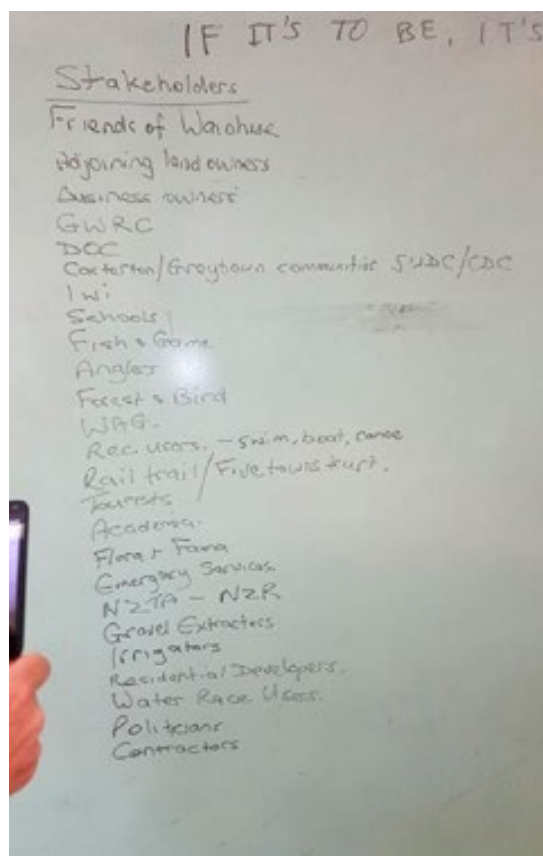 IF IT'S TO BE, IT'S
Stakeholders
Friends of Waiohine
Adjoining land owners
Business owners
GWRC
DOC
Carterton/Greytown communities SWDC/CDC
Iwi
Schools
Fish & Game
Angler
Forest & Bird
WAG.
Rec. users. - swim, boat, canoe
Rail trail/Five towns trust.
Tourists
Academia.
Flora + Fauna
Emergency Services.
NZTA - NZR
Gravel Extractors
Irrigators
Residential Developers.
Water Race Users.
Politicians
Contractors